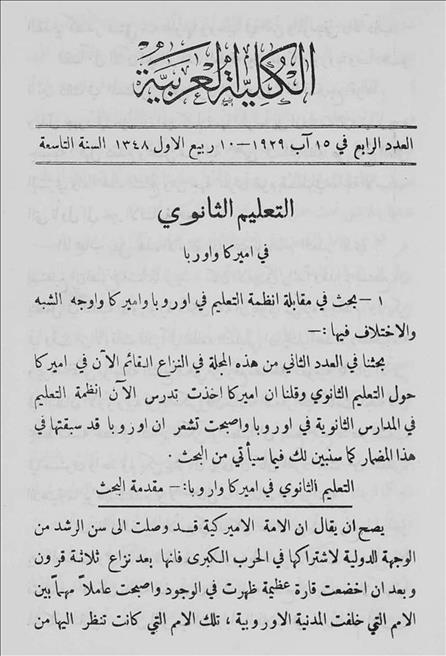 الكلية العربية
العدد الرابع في ١٥ آب ١٩٢٩ – ١٠ ربيع الاول ١٣٤٨ السنة التاسعة
التعليم الثانوي
في اميركا واوربا
١ – بحث في مقابلة انظمة التعليم في اوروبا واميركا واوجه الشبه
والاختلاف فيها :–
بحثنا في العدد الثاني من هذه المجلة في النزاع القائم الآن في اميركا
حول التعليم الثانوي وقلنا ان اميركا اخذت تدرس الآن انظمة التعليم
في المدارس الثانوية في اوروبا واصبحت تشعر ان اوروبا قد سبقتها في
هذا المضمار كما سنبين لك فيما سيأتي من البحث .
التعليم الثانوي في اميركا واروبا :– مقدمة البحث
يصح ان يقال ان الامة الاميركية قد وصلت الى سن الرشد من
الوجهة الدولية لاشتراكها في الحرب الكبرى فانها بعد نزاع ثلاثة قرون
وبعد ان اخضعت قارة عظيمة ظهرت في الوجود واصبحت عاملاً مهماً بين
الامم التي خلفت المدنية الاوروبية ، تلك الامم التي كانت تنظر اليها من